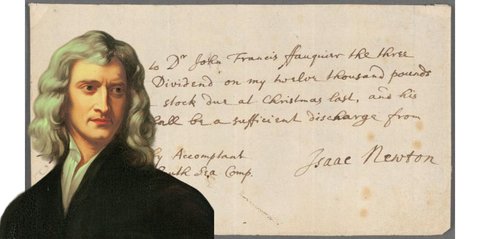 to Dr John Francis ffauquier the three
Dividend on my twelve thousand pounds
stock due at Christmas last, and his
all be a sufficient discharge from
y Accomptant
uth Sea Comp.
Isaac Newton